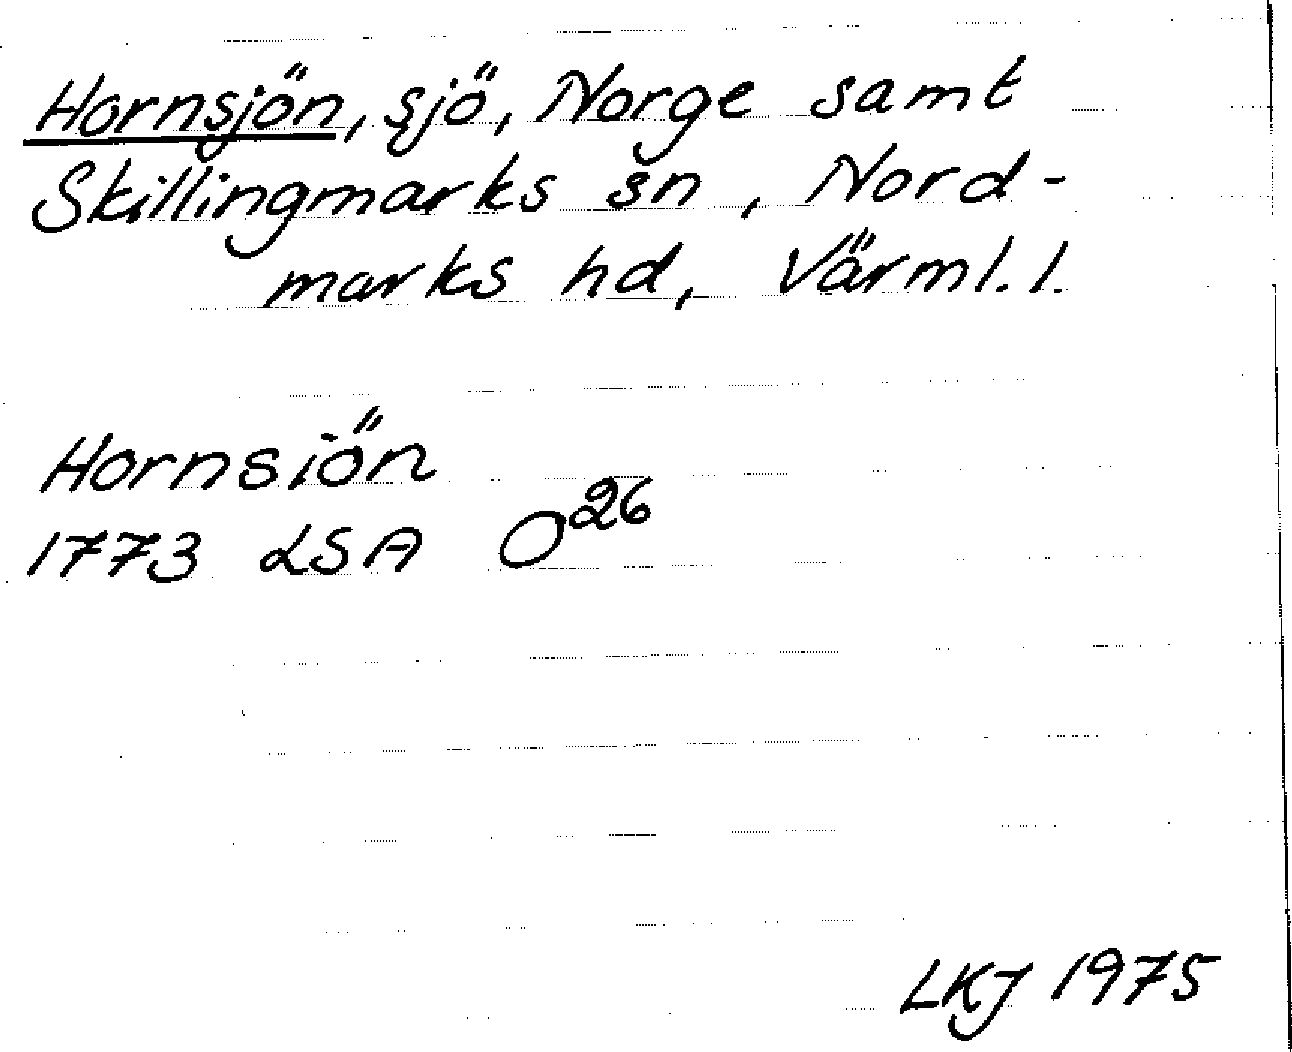 Hornsjön, sjö, Norge samt
Skillingmarks sn, Nord-
marks hd, Värml. l.
Hornsiön
1773 LSA O26
LKJ 1975